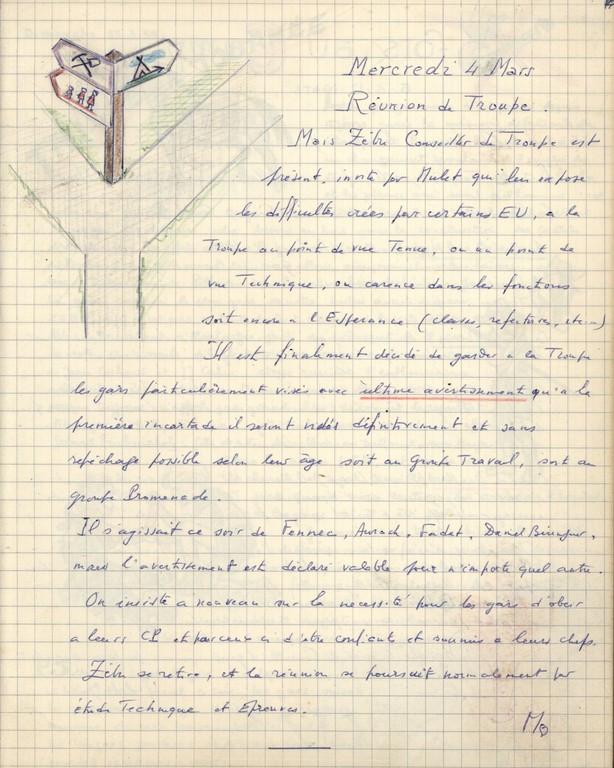 Mercredi 4 Mars
Réunion de Troupe.
Mais Zébu Conseiller de Troupe est
présent, invité par Mulet qui leur expose
les difficultés créées par certains EU, à la
Troupe au point de vue Tenue, ou au point de
vue Technique, ou carence dans les fonctions
soit encore à l'Esperance (classes, refectoires, etc...)
Il est finalement décidé de garder à la Troupe
les gars particulièrement visés avec ultime avertissement qu'à la
première incartade il seront vidés définitivement et sans
repêchage possible selon leur âge soit au Groupe Travail, soit au
groupe Promenade.
Il s'agissait ce soir de Fennec, Aurach, Fadet, Daniel
mais l'avertissement est déclaré valable pour n'importe quel autre.
On insiste à nouveau sur la necessité pour les gars d'obeir
a leurs CP et pour ceux ci d'etre confiants et soumis a leurs chefs.
Zébu se retire, et la réunion se poursuit normalement par
étude Technique et Epreuves.